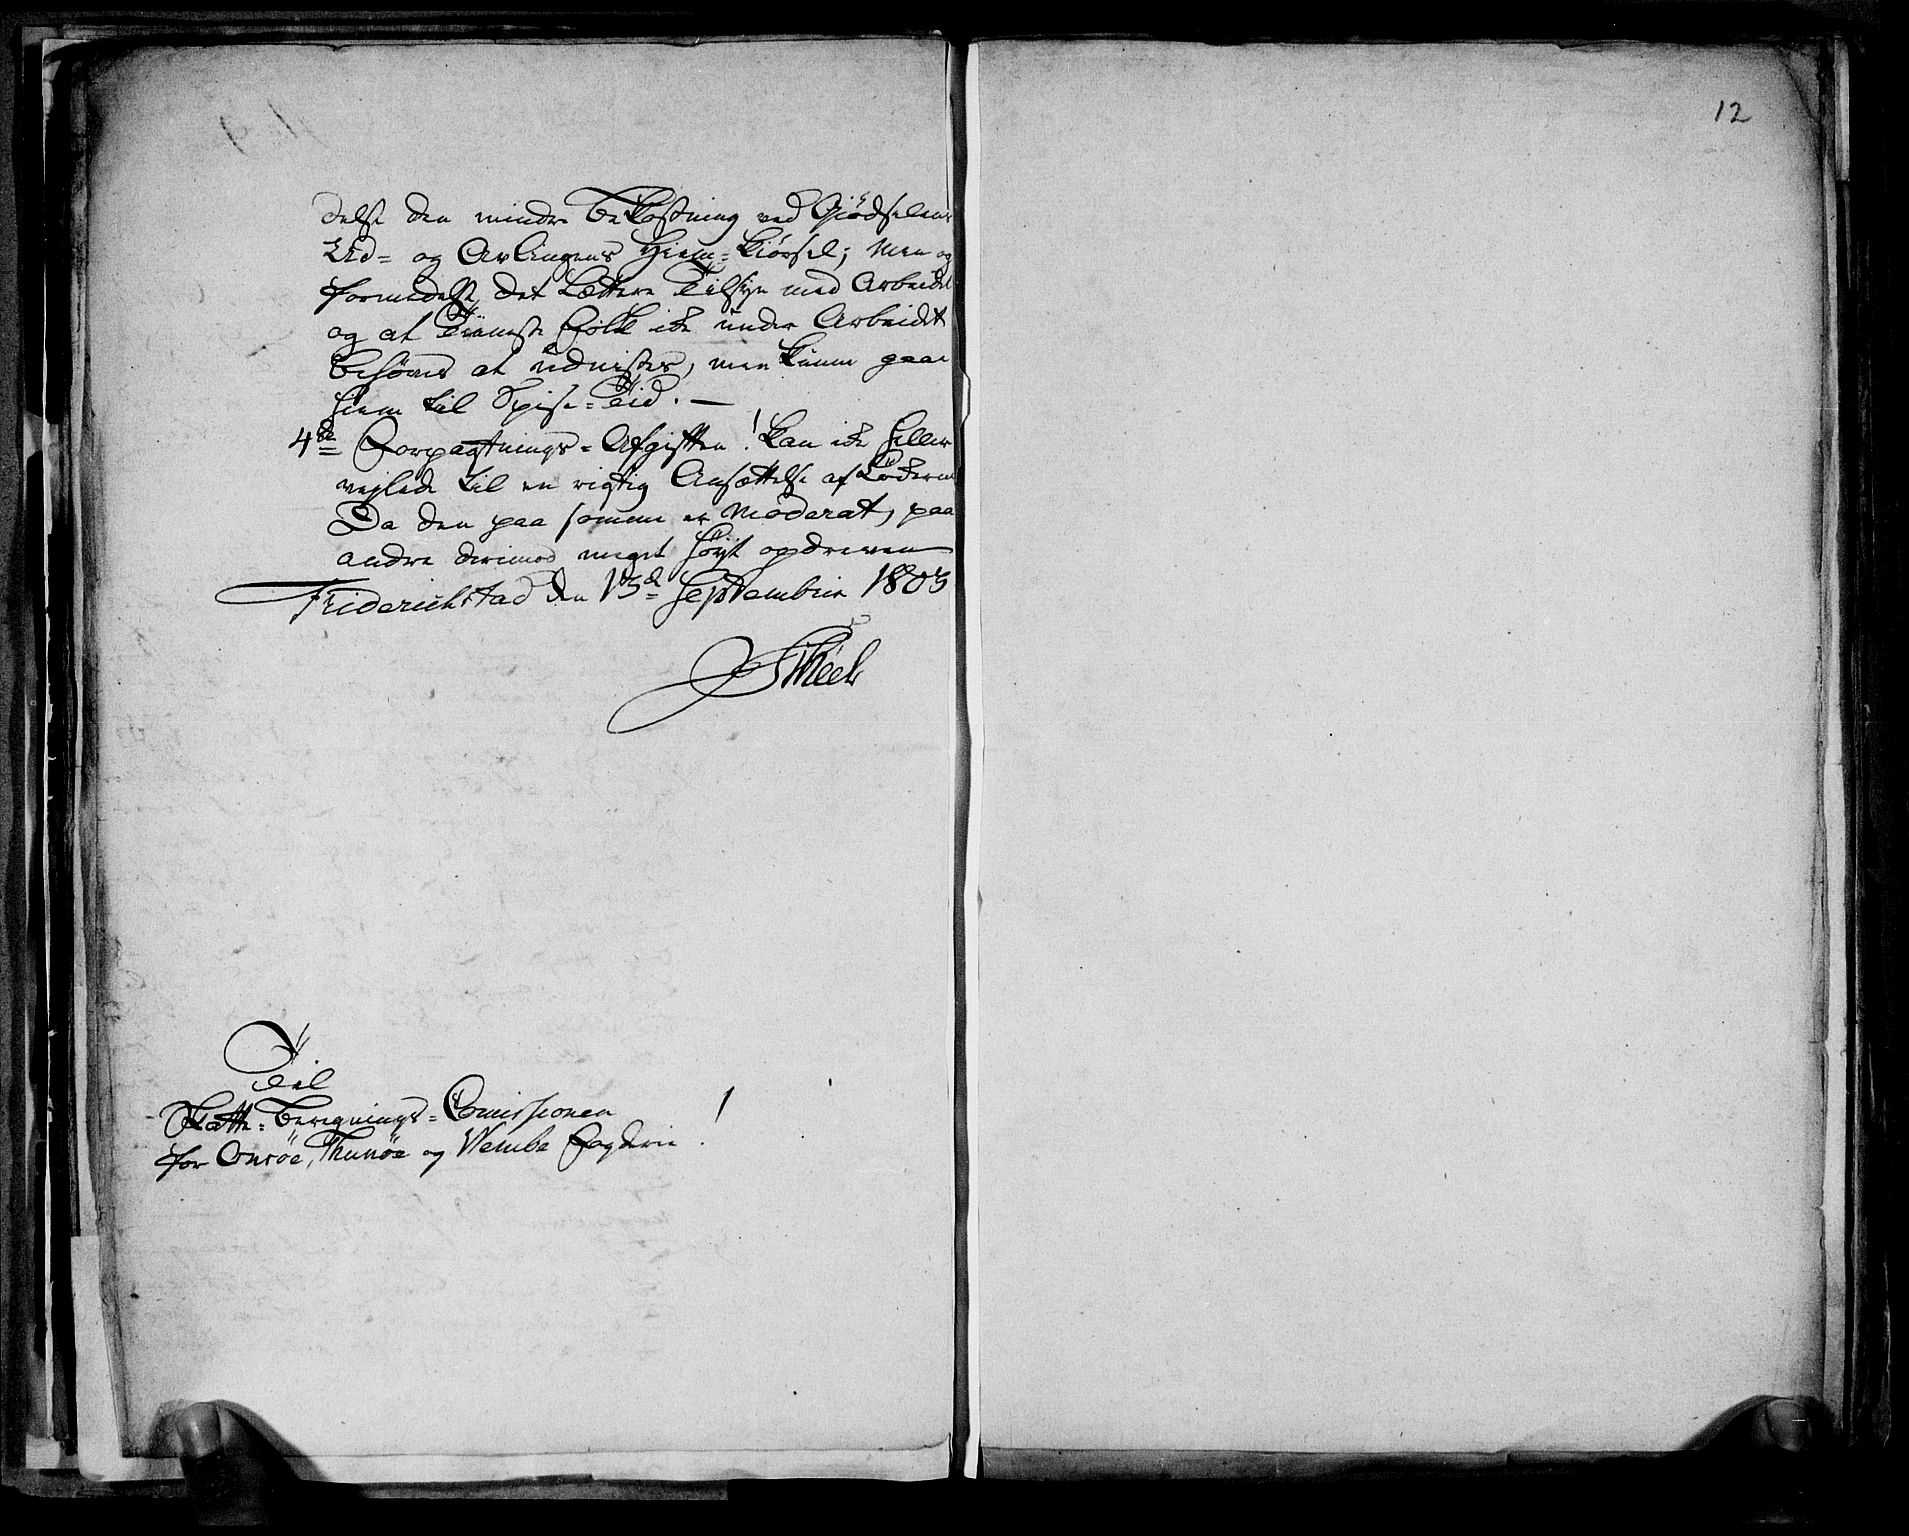 12
delst den mindre Bekostning ved Giödselens
Ud= og Avlingens Hiem=Kiörsel; Men og
formedelst det lættere Tilsyn med Arbeidet
og at Tieneste Folk ike under Arbeidet
behöves at udnistes, men kunne gaae
hiem til Spise=Tid. —
4de Forpagtnings=Afgiften! kan ike heller
vejlede til en rigtig Ansættelse af Löderne
Da den paa somme er moderat, paa
andre derimod meget höyt opdreven
Friderichstad den 13de Septembrir 1803
Til
Skatte=Beregnings=Comissionen
for Onsöe, Thunöe og Wembe Fogderie !